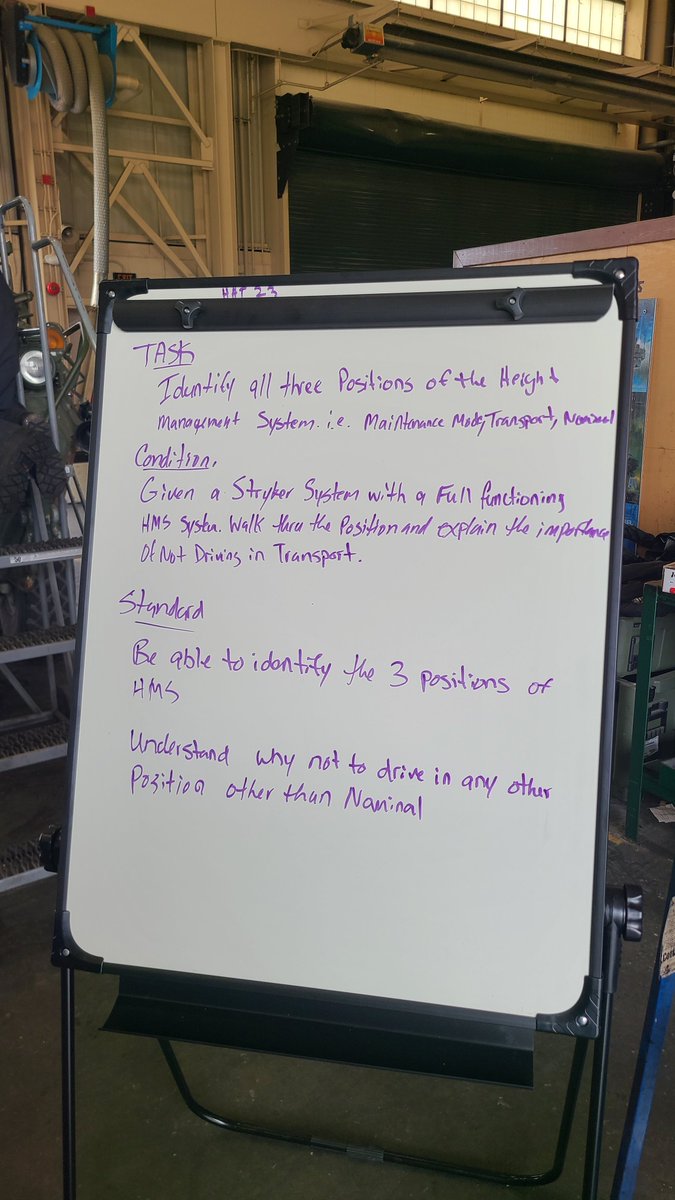 HAT 23
TASK
Identify all three Positions of the Height
Management System. i.e. Maintenance Mode, Transport, Nominal
Condition.
Given a Stryker System with a Full functioning
HMS System. Walk thru the Position and explain the importance
Of Not Driving in Transport.
Standard
Be able to identify the 3 positions of
HMS
Understand why not to drive in any other
Position other than Nominal